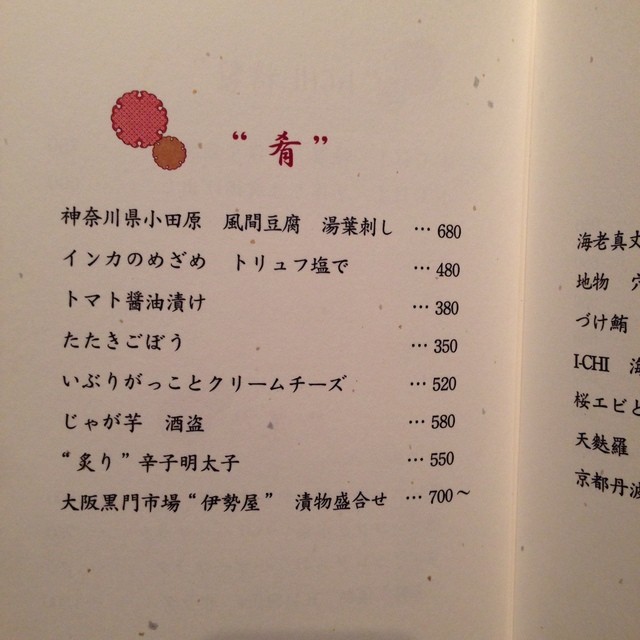 “肴”
神奈川県小田原　風間豆腐　湯葉刺し … 680
インカのめざめ　トリュフ塩で … 480
トマト醤油漬け … 380
たたきごぼう … 350
いぶりがっことクリームチーズ … 520
じゃが芋　酒盗 … 580
“炙り”辛子明太子 … 550
大阪黒門市場“伊勢屋”　漬物盛合せ … 700～
海老真丈
地物　穴
づけ鮪
I-CHI　海
桜エビと
天麩羅
京都丹波